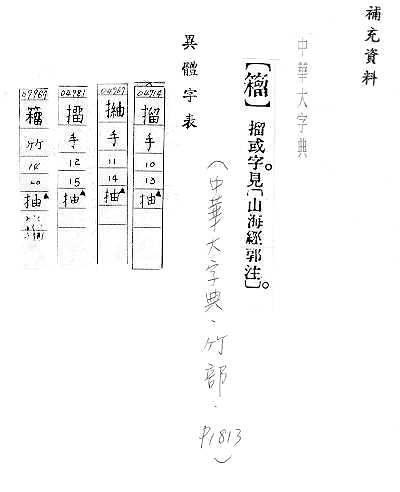 補充資料
中華大字典
【籀】 㨨或字。見「山海經郭注」。
(中華大字典．竹部．
P1813)
異體字表
04714
㨨
手
10
13
抽▲
04767
手
11
14
抽▲
04781
㩅
手
12
15
抽▲
09969
竹
14
20
抽▲